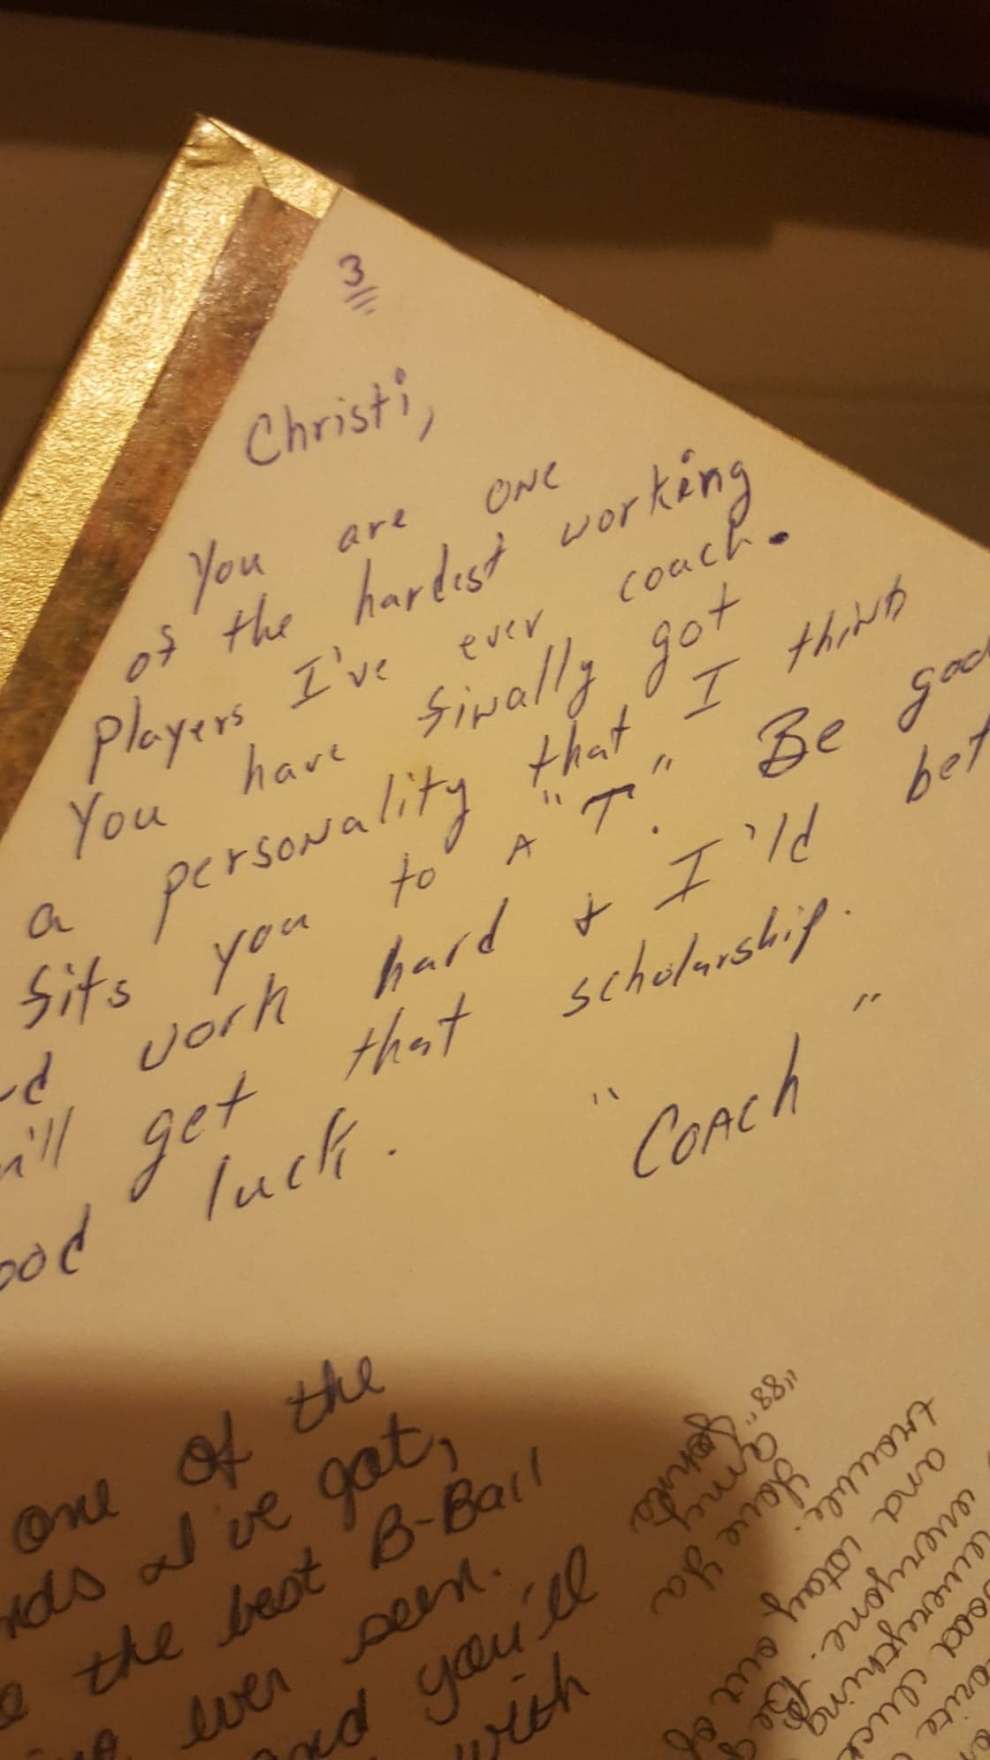 3
Christi,
You are one
of the hardest working
players I've ever coach.
You have finally got
a personality that I think
fits you to A "T". Be good
work hard & I'ld bet
get that scholarship.
luck. "COACH"
one of the
I've got,
the best B-Ball
ever seen.
and you'll
with
"88"
Love ya
and
everyone. Be
everything